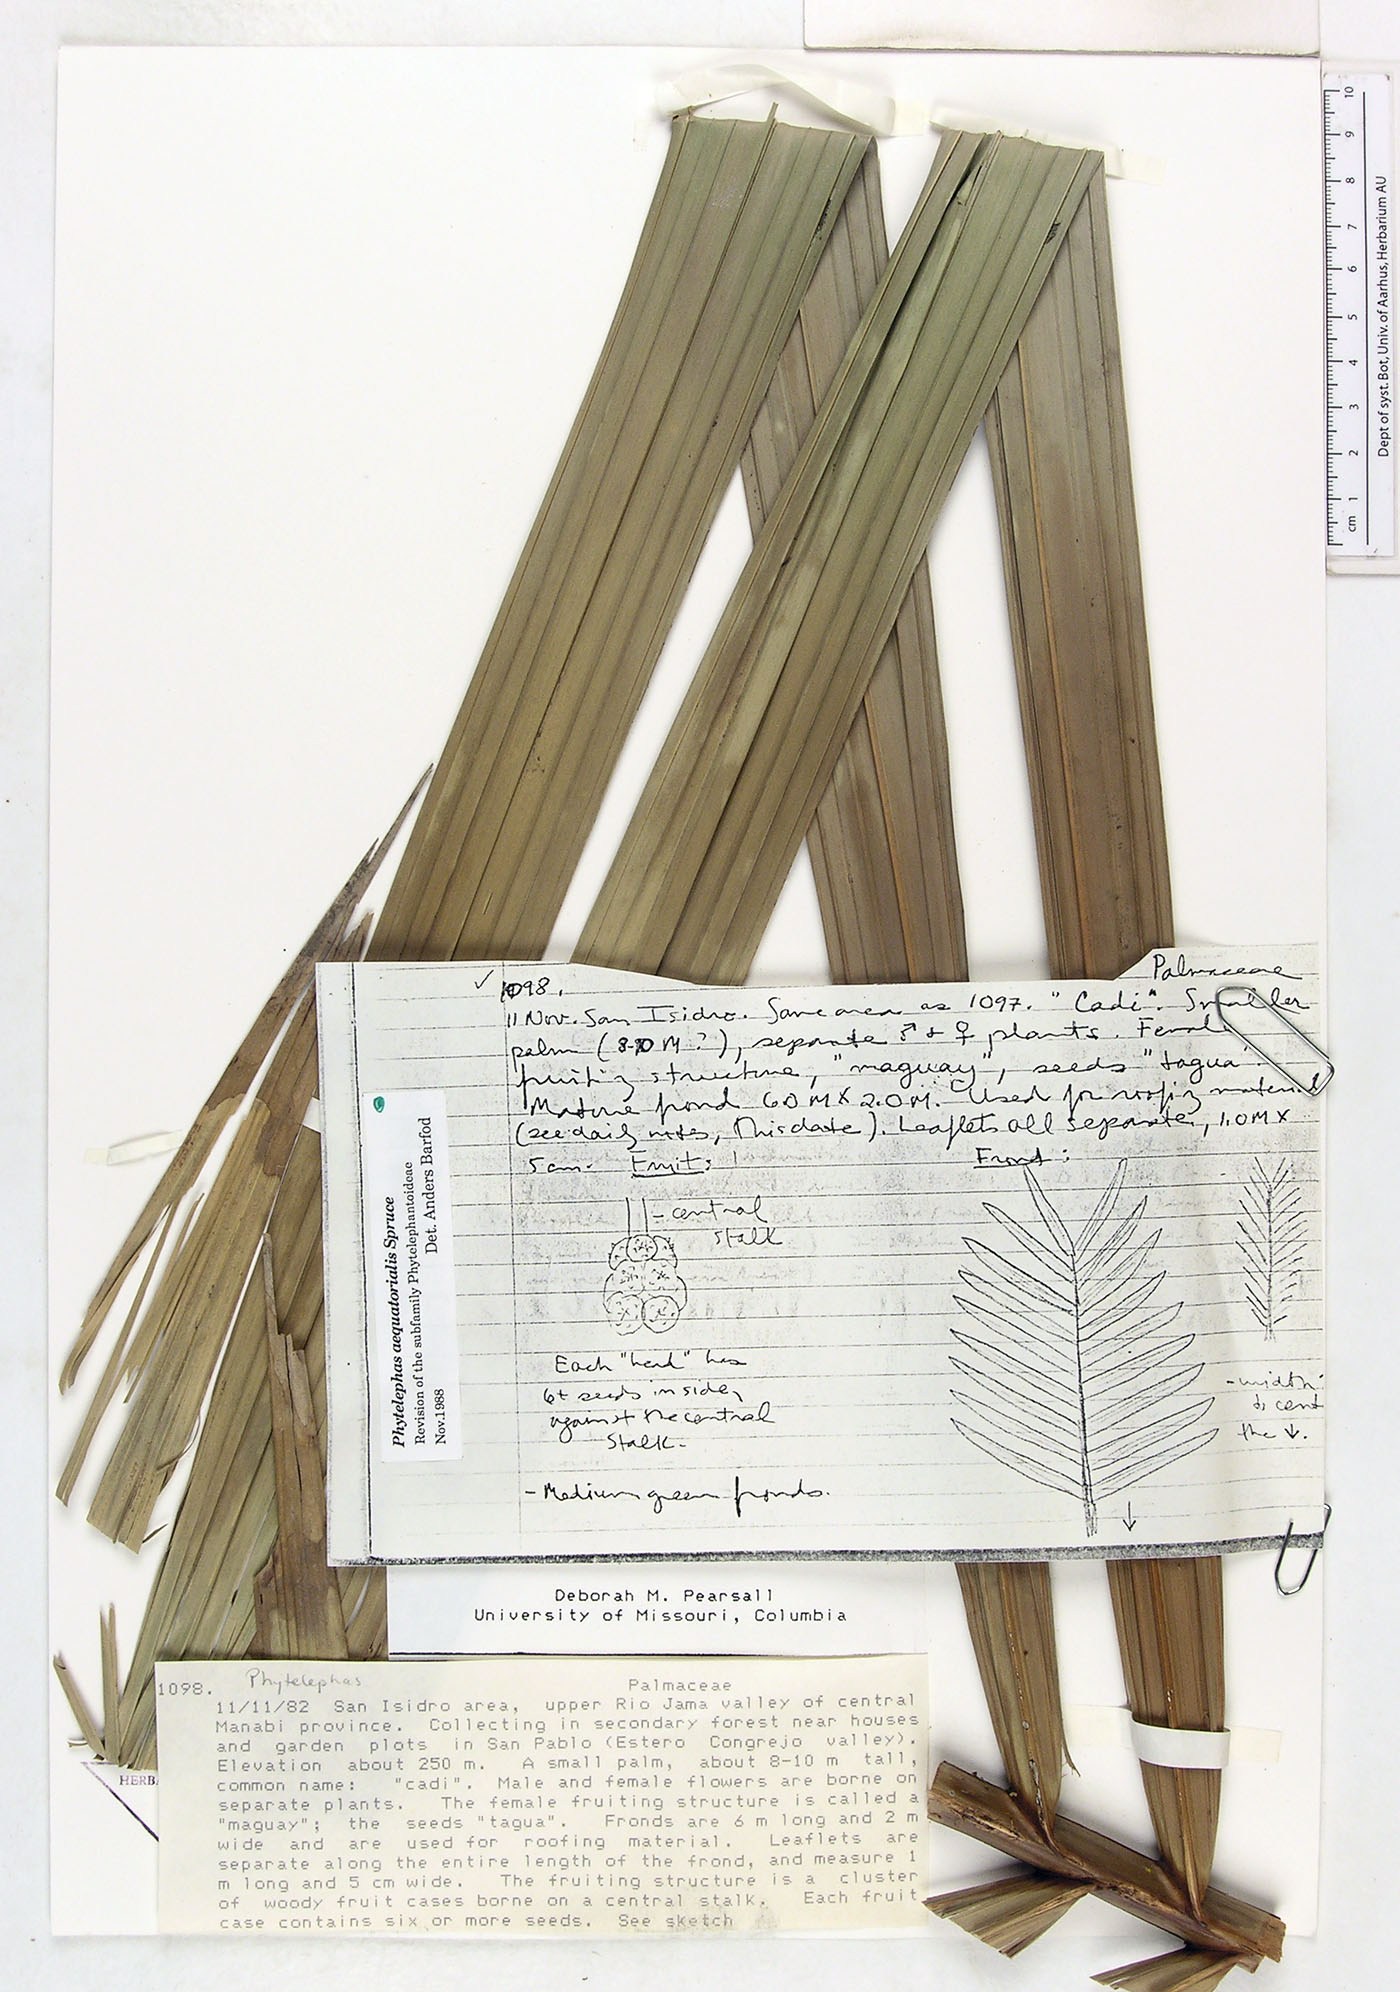 10
9
8
7
6
5
4
3
2
1
cm
Dept of syst. Bot, Univ. of Aarhus, Herbarium AU
✓ 1098. Palmaceae
11 Nov. San Isidro. Same area as 1097. "Cadi". Smaller
palm (8-10 M?), separate ♂ + ♀ plants. Female
fruiting structure, "maguay", seeds "tagua".
Mature frond 6.0 M X 2.0 M. Used for roofing material
(see daily notes, this date). Leaflets all separate, 1.0 M X
5 cm. Fruit: Frond:
- central
stalk
Each "head" has
6+ seeds inside,
against the central
stalk.
- Medium green fronds.
- width
cent
the ↓.
↓
Phytelephas aequatorialis Spruce
Revision of the subfamily Phytelephantoideae
Nov. 1988 Det. Anders Barfod
Deborah M. Pearsall
University of Missouri, Columbia
1098. Phytelephas Palmaceae
11/11/82 San Isidro area, upper Rio Jama valley of central
Manabi province. Collecting in secondary forest near houses
and garden plots in San Pablo (Estero Congrejo valley).
Elevation about 250 m. A small palm, about 8-10 m tall,
common name: "cadi". Male and female flowers are borne on
separate plants. The female fruiting structure is called a
"maguay"; the seeds "tagua". Fronds are 6 m long and 2 m
wide and are used for roofing material. Leaflets are
separate along the entire length of the frond, and measure 1
m long and 5 cm wide. The fruiting structure is a cluster
of woody fruit cases borne on a central stalk. Each fruit
case contains six or more seeds. See sketch
HERB